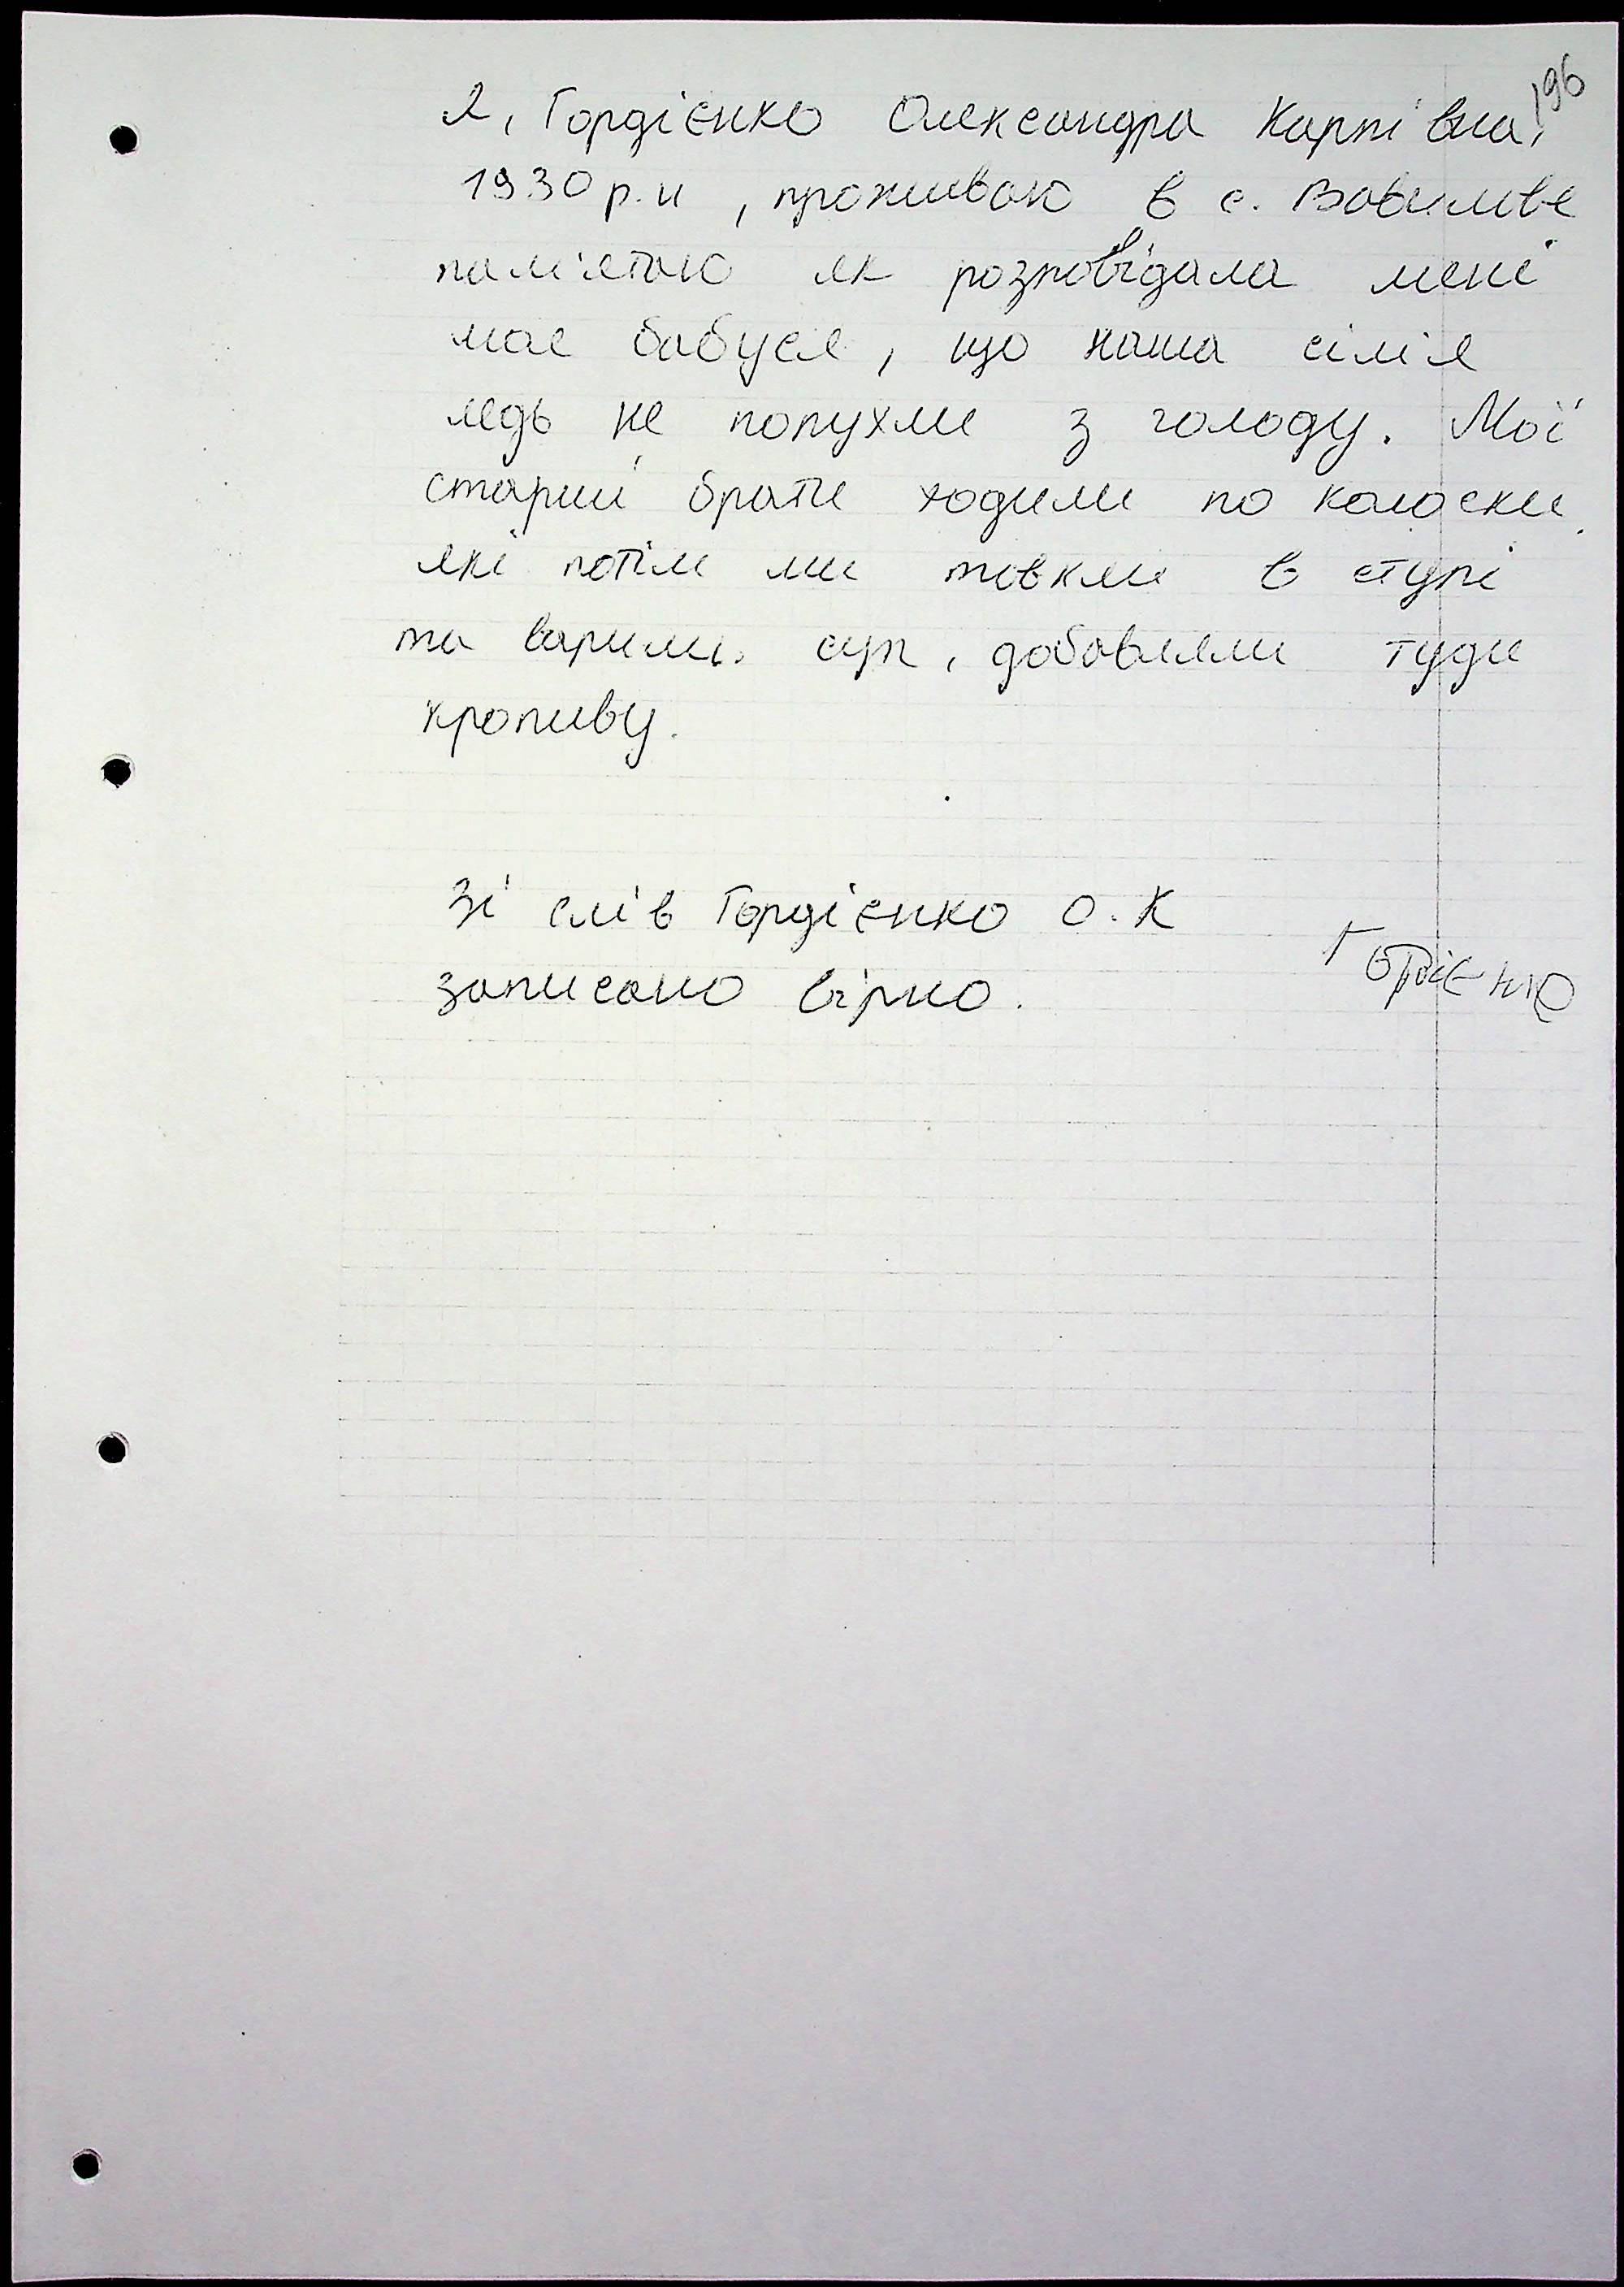 196
Я, Гордієнко Олександра Карпівна,
1930 р.н, проживаю в с. Вавилове
пам'ятаю як розповідала мені
моя бабуся, що наша сім'я
ледь не попухли з голоду. Мої
старші брати ходили по колоски
які потім ми товкли в ступі
та варили суп, добавляли туди
кропиву.
Зі слів Гордієнко О.К
записано вірно.
Гордієнко